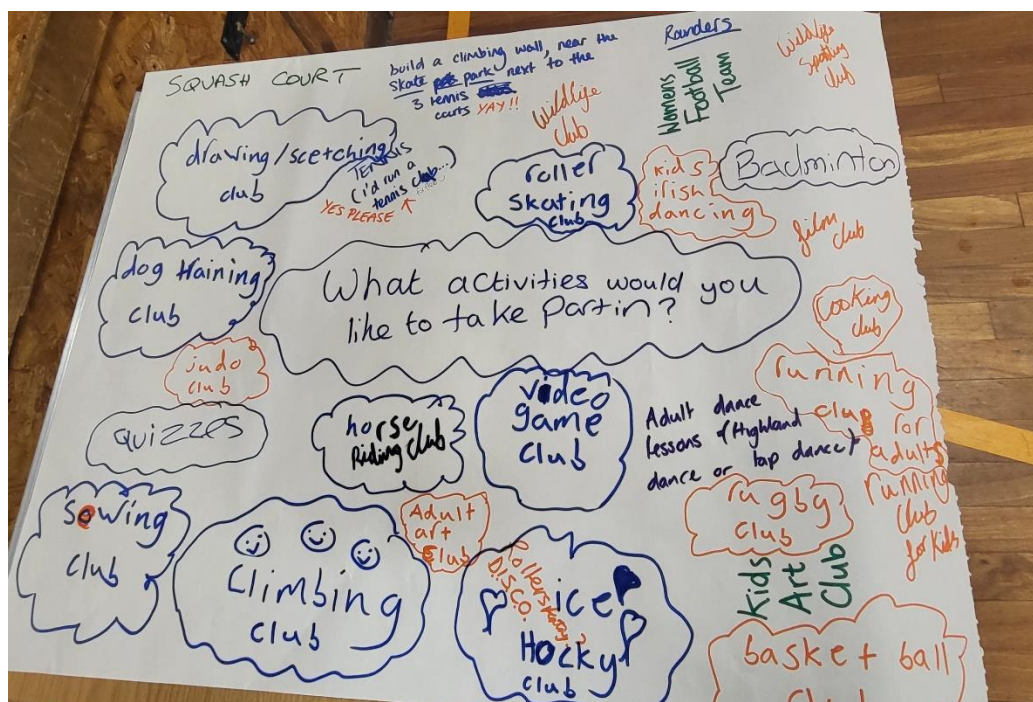 SQUASH COURT
build a climbing wall, near the
skate park next to the
3 tennis
courts YAY!!
Rounders
Womens
Football
Team
Wildlife
Spotting
Club
Wildlife
Club
drawing/scetching
club
TENNIS
(i'd run a
tennis club...)
YES PLEASE ↑
roller
skating
club
kids
irish
dancing
Badminton
film
club
dog training
club
What activities would you
like to take Part in?
Cooking
club
judo
club
quizzes
horse
Riding Club
video
game
Club
Adult dance
lessons (Highland
dance or tap dance)
running
club for
adults
running
Club
for Kids
Sewing
club
Climbing
club
Adult
art
Club
Rollerskating
DISCO.
ice
Hocky
club
rugby
club
Kids
Art
Club
basket ball